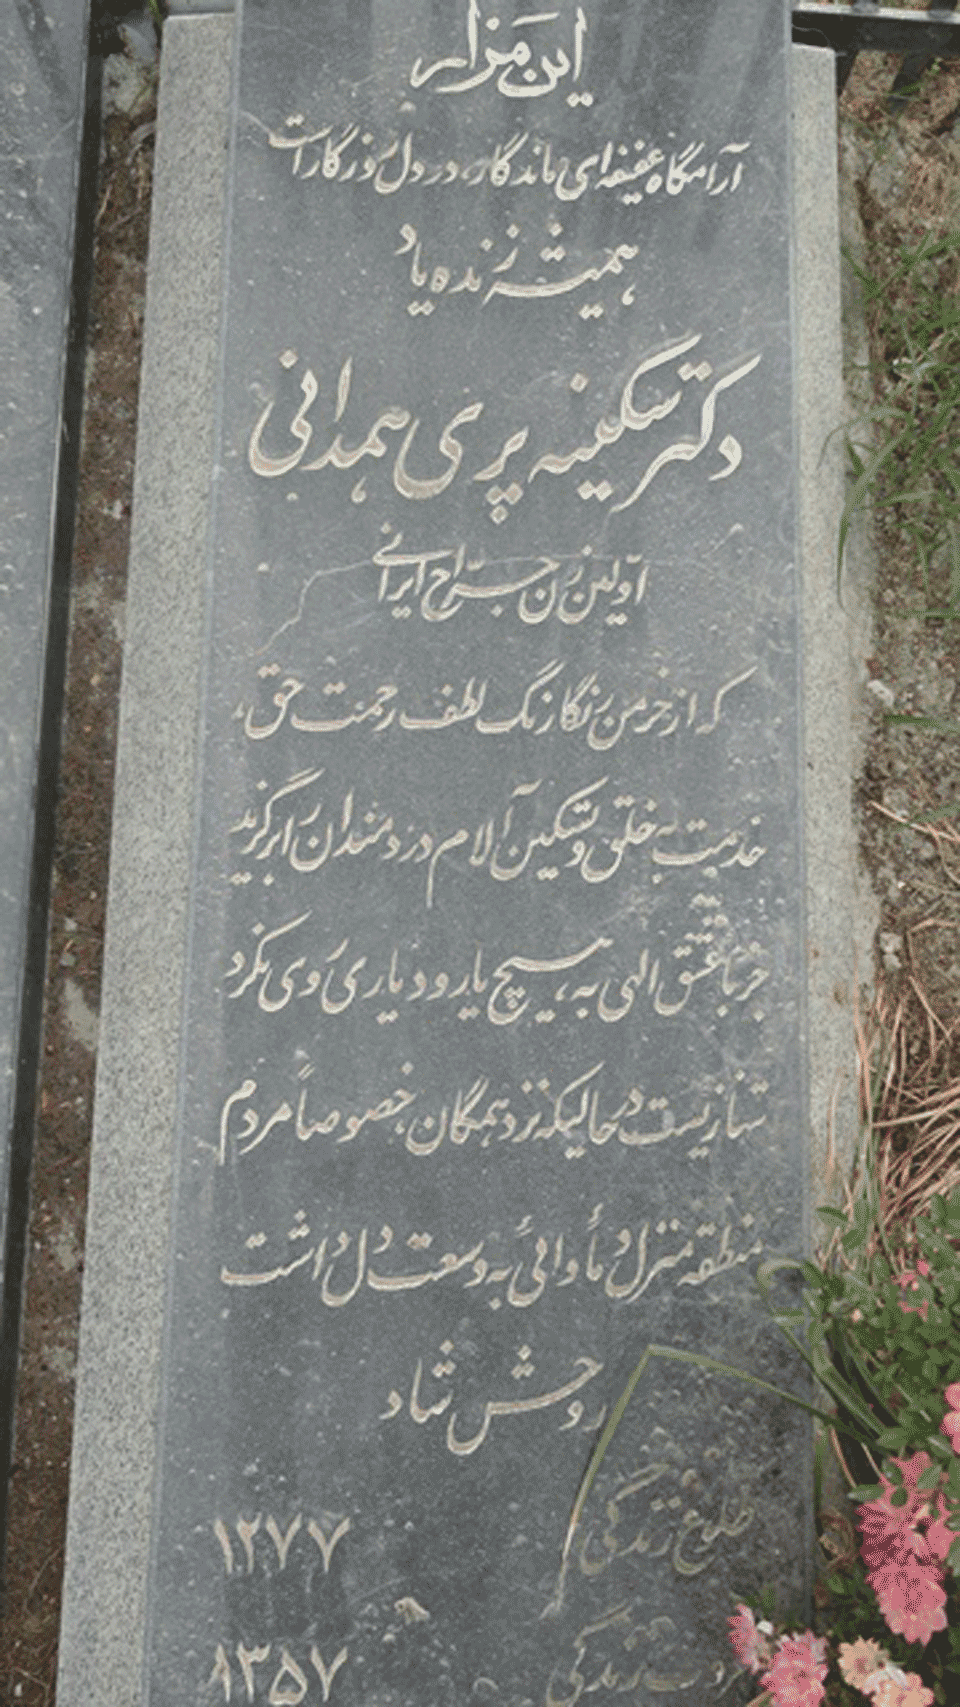 این مزار
آرامگاه عفیفه‌ای ماندگار، در دل روزگار است
همیشه زنده یاد
دکتر سکینه پری همدانی
اولین زن جرّاح ایرانی
که از خرمن رنگارنگ لطف رحمت حق،
خدمت به خلق و تسکین آلام دردمندان را برگزید
جز با عشق الهی به هیچ یار و دیاری روی نکرد
تنها زیست در حالیکه نزد همگان، خصوصاً مردم
منطقه منزل و مأوائی به وسعت دل داشت
روحش شاد
طلوع زندگی ۱۲۷۷
زندگی ۱۳۵۷